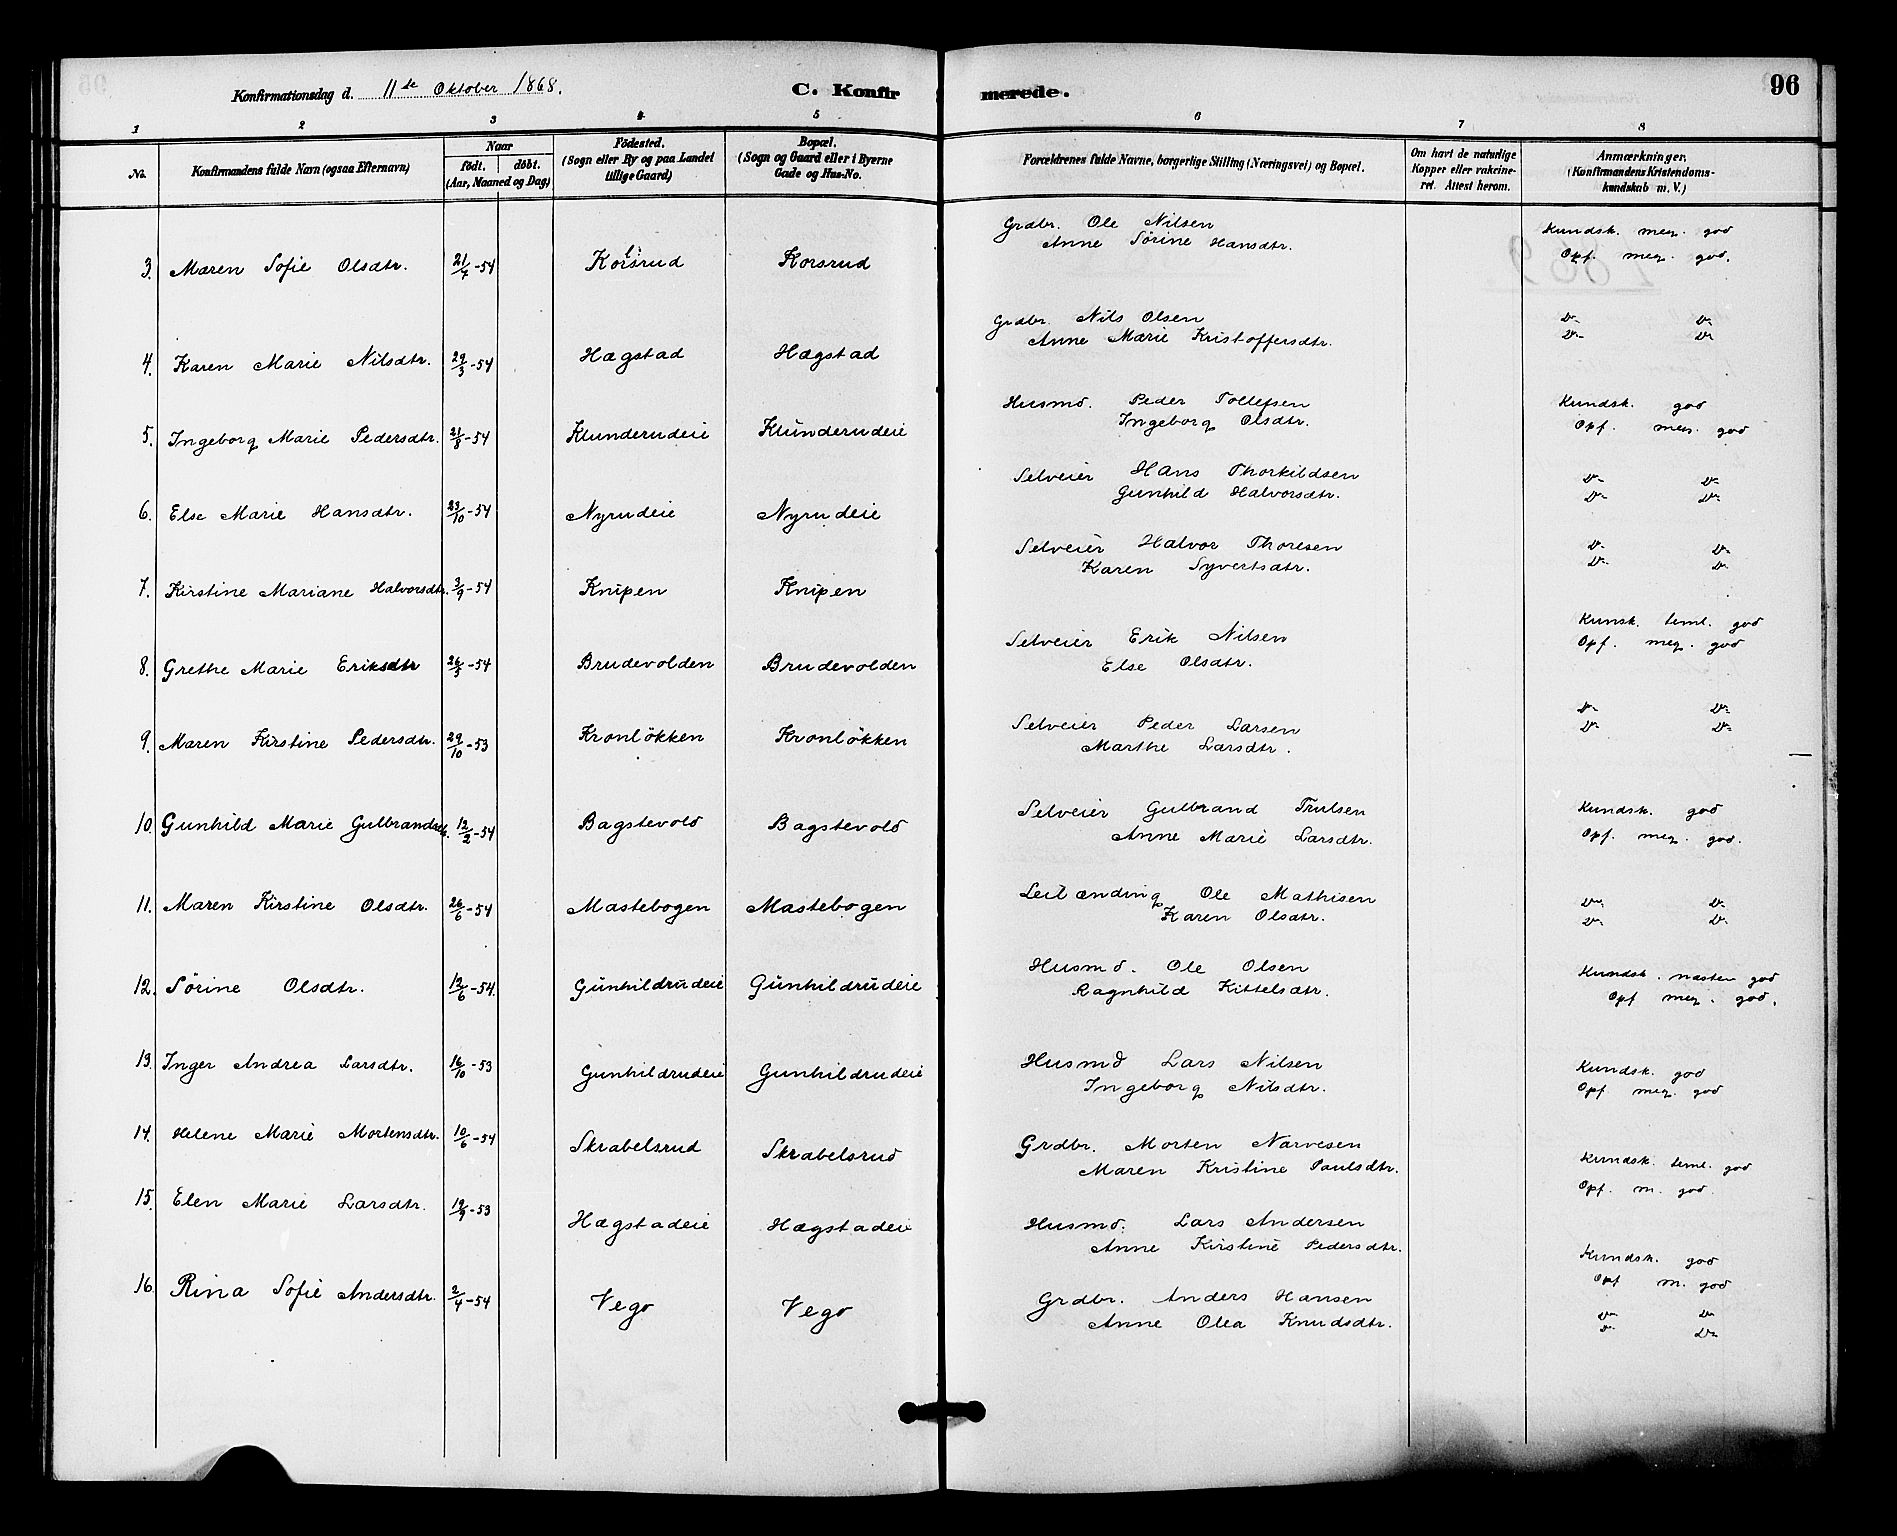 Konfirmationsdag d. 11te Oktober 1868.
C. Konfirmerede.
96
1 2 3 4 5 6 7 8
No.
Konfirmandens fulde Navn (ogsaa Efternavn)
Naar
födt. döbt.
(Aar, Maaned og Dag)
Födested.
(Sogn eller By og paa Landet
tillige Gaard)
Bopæl.
(Sogn og Gaard eller i Byerne
Gade og Hus-No.
Forældrenes fulde Navne, borgerlige Stilling (Næringsvei) og Bopæl.
Om havt de naturlige
Kopper eller vakcine-
ret. Attest herom.
Anmærkninger.
(Konfirmandens Kristendoms-
kundskab m. V.)
3. Maren Sofie Olsdtr. 21/7-54 Korsrud Korsrud
Grdbr. Ole Nilsen
Anne Sørine Hansdtr.
Kundsk. meg. god
Opf. meg. god.
4. Karen Marie Nilsdtr. 29/3-54 Hægstad Hægstad
Grdbr. Nils Olsen
Anne Marie Kristoffersdtr.
Do Do
Do Do
5. Ingeborg Marie Pedersdtr. 21/8-54 Klunderudeie Klunderudeie
Husmd. Peder Tollefsen
Ingeborg Olsdtr.
Kundsk. god
Opf. meg. god
6. Else Marie Hansdtr. 23/10-54 Nyrudeie Nyrudeie
Selveier Hans Thorkildsen
Gunhild Halvorsdtr.
Do Do
Do Do
7. Kirstine Mariane Halvorsdtr. 3/9-54 Knipen Knipen
Selveier Halvor Thoresen
Karen Syvertsdtr.
Do Do
Do Do
8. Grethe Marie Eriksdtr 26/3-54 Brudevolden Brudevolden
Selveier Erik Nilsen
Else Olsdtr.
Kunsk. teml. god
Opf. meg. god
9. Maren Kirstine Pedersdtr. 29/10-53 Kronløkken Kronløkken
Selveier Peder Larsen
Marthe Larsdtr.
Do Do
Do Do
10. Gunhild Marie Gulbrandsdtr. 12/2-54 Bagstevold Bagstevold
Selveier Gulbrand Trulsen
Anne Marie Larsdtr.
Kundsk. god
Opf. meg. god.
11. Maren Kirstine Olsdtr. 26/6-54 Mastebogen Mastebogen
Leilænding Ole Mathisen
Karen Olsdtr.
Do Do
Do Do
12. Sørine Olsdtr. 12/6-54. Gunhildrudeie Gunhildrudeie
Husmd. Ole Olsen
Ragnhild Kittelsdtr.
Kundsk. næsten god
Opf meg. god.
13. Inger Andrea Larsdtr. 16/10-53 Gunhildrudeie Gunhildrudeie
Husmd Lars Nilsen
Ingeborg Nilsdtr.
Kundsk. god
Opf. meg. god
14. Helene Marie Mortensdtr. 10/6-54 Skrabelsrud Skrabelsrud
Grdbr. Morten Narvesen
Maren Kristine Paulsdtr.
Kundsk. teml. god
Opf. m. god.
15. Elen Marie Larsdtr. 19/9-53 Hægstadeie Hægstadeie
Husmd. Lars Andersen
Anne Kirstine Pedersdtr.
Kundsk. god
Opf m. god
16. Rina Sofie Andersdtr. 2/4-54 Vego Vego
Grdbr. Anders Hansen
Anne Olea Knudsdtr.
Do Do
Do Do